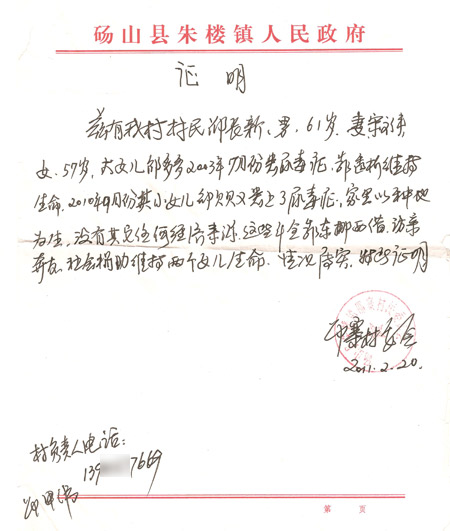 砀山县朱楼镇人民政府
证明
兹有我村村民邵长新、男、61岁、妻宋
女、57岁、大女儿邵多多2003年7月份患尿毒症、靠透析维持
生命、2010年9月份其小女儿邵贝贝又患上了尿毒症、家里以种地
为生、没有其它任何经济来源、这些年全靠东挪西借、访亲
奔友、社会捐助维持两个女儿生命、情况属实、特此证明
邵寨村委会
2011.2.20.
村负责人电话:
139 7669
第 页